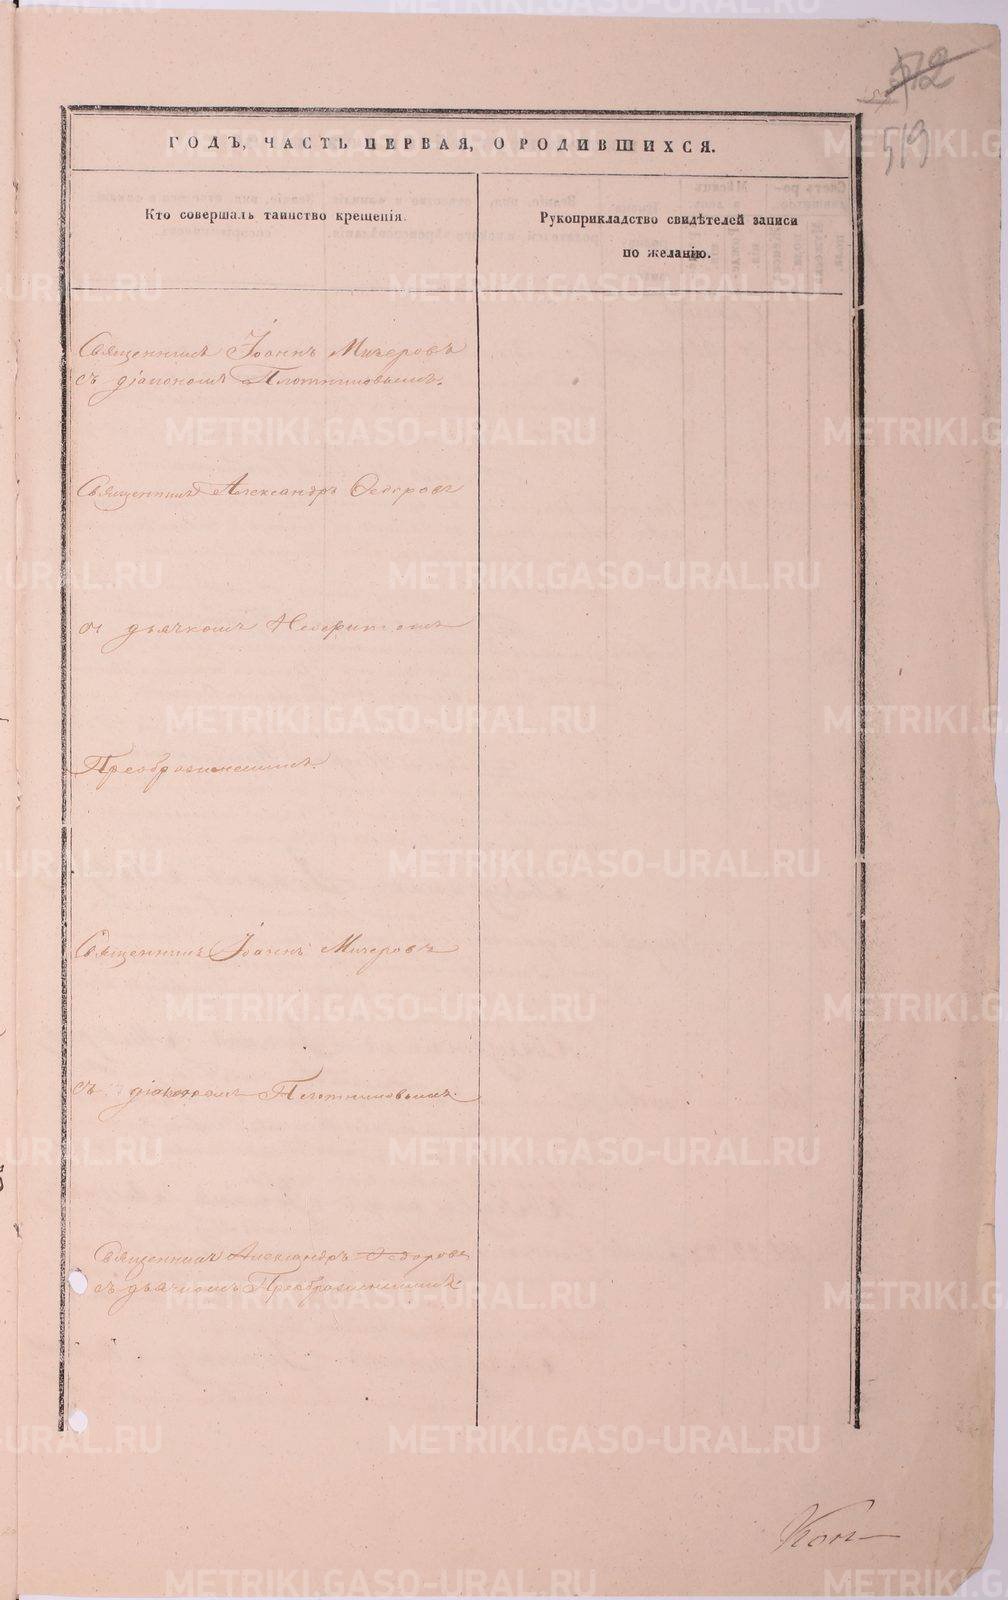 512
519
ГОДЪ, ЧАСТЬ ПЕРВАЯ, О РОДИВШИХСЯ.
Кто совершалъ таинство крещенія.
Рукоприкладство свидѣтелей записи
по желанію.
Священникъ Іоаннъ Мичеровъ
съ діакономъ Плотниковымъ.
Священникъ Александръ Ѳедоровъ
съ дьячкомъ
Преображенскимъ.
Священникъ Іоаннъ Мичеровъ
съ діакономъ Плотниковымъ.
Священникъ Александръ Ѳедоровъ
съ дьячкомъ Преображенскимъ
METRIKI.GASO-URAL.RU